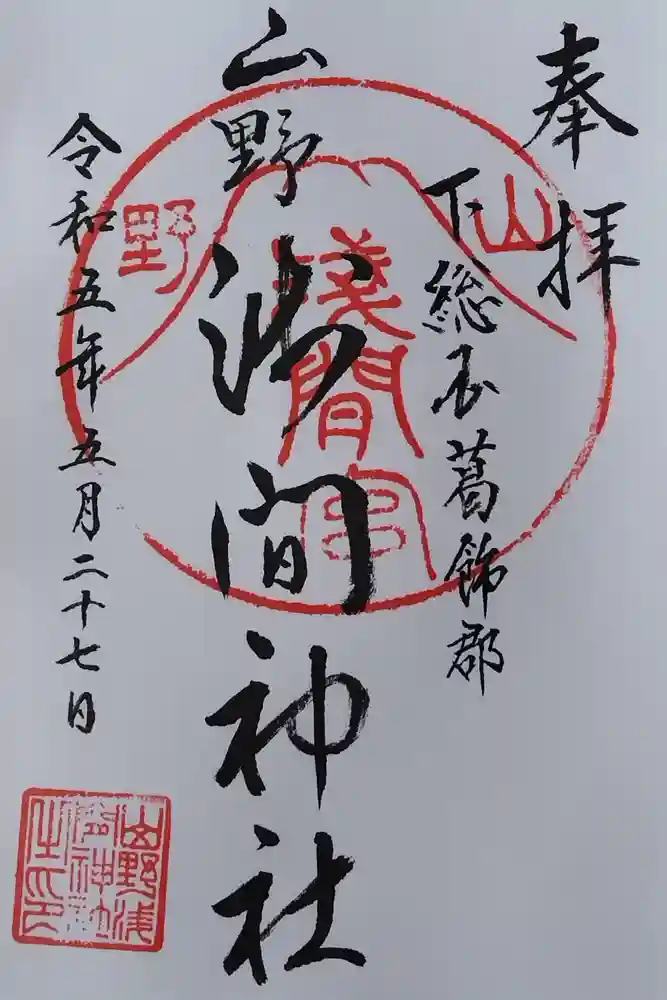 奉拝
下総国葛飾郡
山野浅間神社
令和五年五月二十七日
山
野
浅間宮